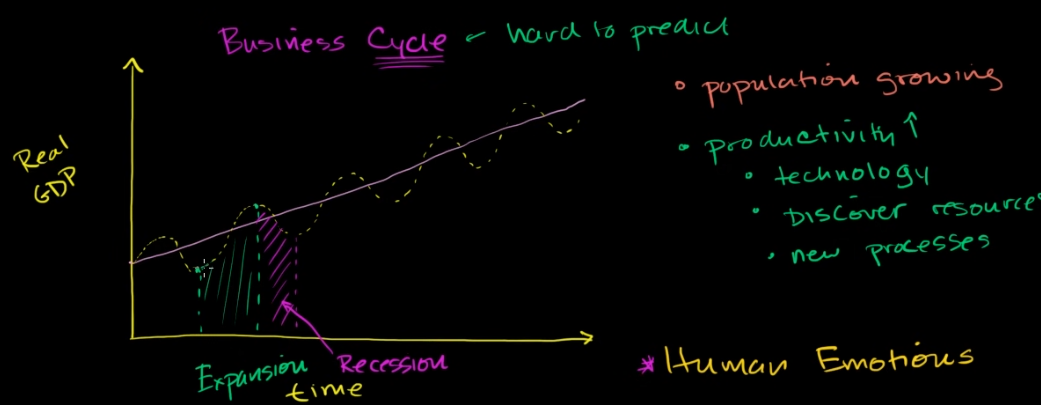 Business Cycle - hard to predict
Real
GDP
Expansion
Recession
time
• population growing
• productivity ↑
• technology
• Discover resource
• new processes
* Human Emotions